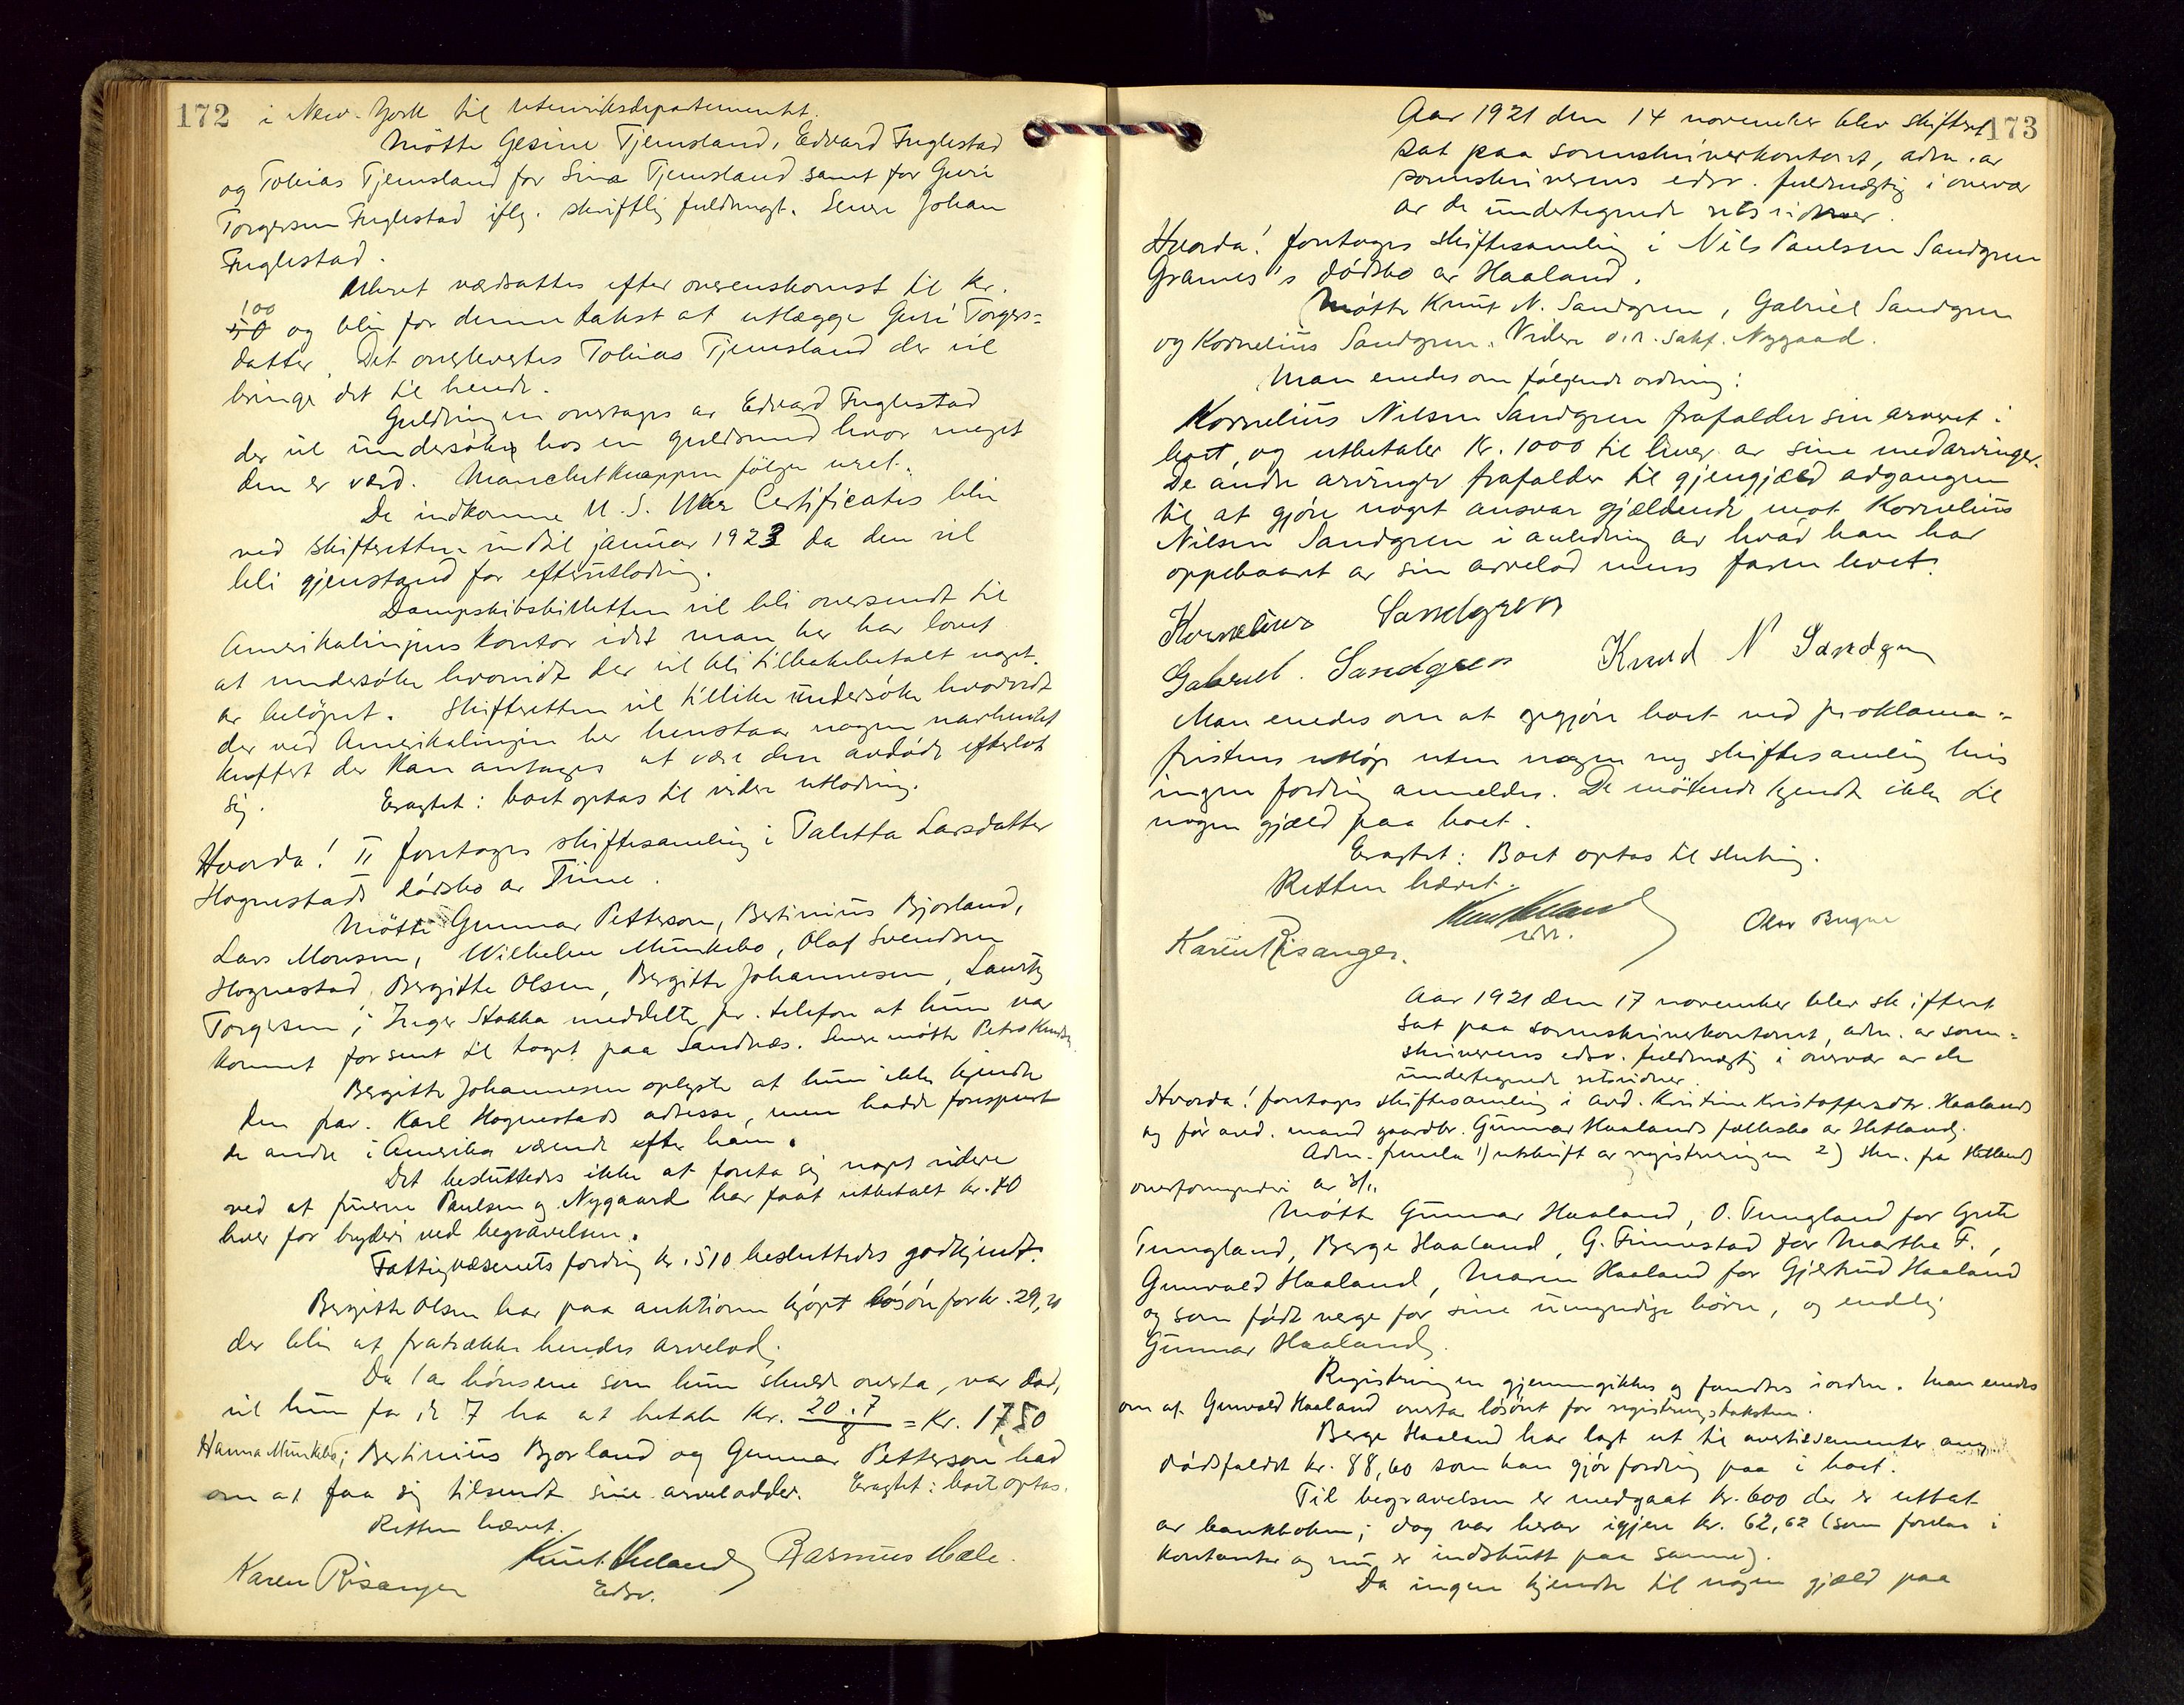 172
i New-York til Utenriksdepartementet.
Møtte Gesine Tjemsland, Edvard Fuglestad
og Tobias Tjemsland for Sina Tjemsland samt for Guri
Torgersen Fuglestad iflg. skriftlig fuldmagt. Senere Johan
Fuglestad.
Uhret værdsattes efter overenskomst til kr.
100
50 og blir for denne takst at utlægge Guri Torgers-
datter. Det overlevertes Tobias Tjemsland der vil
bringe det til hende.
Guldringen overtages av Edvard Fuglestad
der vil undersøke hos en guldsmed hvor meget
den er værd. Manchetknappen følger uret.
De indkomne U.S. War Certificates blir
ved skifteretten indtil januar 1923 da den vil
bli gjenstand for efterutlodning.
Dampskibsbilletten vil bli oversendt til
Amerikalinjens kontor idet man her har lovet
at undersøke hvorvidt der vil bli tilbakebetalt noget
av beløpet. Skifteretten vil tillike undersøke hvorvidt
der ved Amerikalinjen her henstaar nogen uavhentet
kuffert der kan antages at være den avdøde efterlot
sig. Eragtet: boet optas til videre utlodning.
Hvorda! II foretages skiftesamling i Talette Larsdatter
Hognestads dødsbo av Time.
Møtte Gunnar Petterson, Bertinius Bjorland,
Lars Monsen, Wilhelm Munkebo, Olaf Svendsen
Hognestad, Bergitte Olsen, Bergitte Johannesen, Lauritz
Torgersen; Inger Stokka meddelte pr. telefon at hun var
kommet for sent til toget paa Sandnæs. Senere møtte Petro Knudsen
Bergitte Johannesen oplyste at hun ikke kjendte
den frav. Karl Hognestads adresse, men hadde forespurt
de andre i Amerika værende efter ham.
Det besluttedes ikke at foreta sig noget videre
ved at fruerne Paulsen og Nygaard har faat utbetalt kr. 40
hver for bryderi ved begravelsen.
Fattigvæsenets fordring kr. 510 besluttedes godkjent.
Bergitte Olsen har paa auktionen kjøpt løsøre for kr. 29,20
der blir at fratrække hendes arvelod.
Da 1 av hønsene som hun skulde overta, var død,
vil hun for de 7 ha at betale kr. 20.7/8 = kr. 17,50
Hanna Munkebo; Bertinius Bjorland og Gunnar Petterson bad
om at faa sig tilsendt sine arvelodder. Eragtet: boet optas.
Retten hævet.
Karen Risanger
Edsv.
Rasmus Mæle.
173
Aar 1921 den 14 november blev skifteret
sat paa sorenskriverkontoret, adm. av
sorenskriverens edsv. fuldmægtig i overvær
av de undertegnede retsvidner.
Hvorda! foretages skiftesamling i Nils Paulsen Sandgren
dødsbo av Haaland.
Møtte Knut N. Sandgren, Gabriel Sandgren
og Kornelius Sandgren. Videre o.r. sakf. Nygaard.
Man enedes om følgende ordning:
Kornelius Nilsen Sandgren frafalder sin arveret i
boet, og utbetaler kr. 1000 til hver av sine medarvinger.
De andre arvinger frafalder til gjengjæld adgangen
til at gjøre noget ansvar gjældende mot Kornelius
Nilsen Sandgren i anledning av hvad han har
oppebaaret av sin arvelod mens faren levet.
Kornelius Sandgren
Gabriel. Sandgren Knud N Sandgren
Man enedes om at opgjøre boet ved proklama-
fristens utløp uten nogen ny skiftesamling hvis
ingen fordring anmeldes. De møtende kjendte ikke til
nogen gjæld paa boet.
Eragtet: Boet optas til slutning.
Retten hævet.
Karen Risanger.
Olav Bryne
Aar 1921 den 17 november blev skifteret
sat paa sorenskriverkontoret, adm. av soren-
skriverens edsv. fuldmægtig i overvær av de
undertegnede retsvidner.
Hvorda! foretages skiftesamling i avd. Kristine Kristoffersdtr. Haalands
og før avd. mand gaardbr. Gunnar Haalands fællesbo av Hetland.
Adm. fremla 1) utskrift av registreringen 2) skr. fra Hetland
overformynderi av 3/11
Møtte Gunnar Haaland, O. Tungland for Grete
Tungland, Berge Haaland, G. Finnestad for Marthe F.,
Gunvald Haaland, Maren Haaland for Gjertrud Haaland
og som født verge for sine umyndige børn, og endelig
Gunnar Haaland.
Registreringen gjennemgikkes og fandtes i orden. Man enedes
om at Gunvald Haaland overtar løsøret for registreringstaksten.
Berge Haaland har lagt ut til avertissementer ang
dødsfaldet kr. 88,60 som han gjør fordring paa i boet.
Til begravelsen er medgaat kr. 600 der er uttat
av bankboken; dog var herav igjen kr. 62,62 (som forelaa i
kontanter og nu er indskutt paa samme).
Da ingen kjendte til nogen gjæld paa